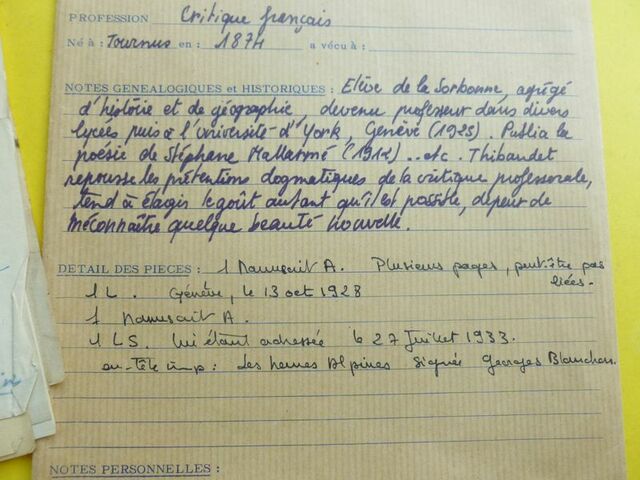 PROFESSION Critique français
Né à : Tournus en : 1874 a vécu à :
NOTES GENEALOGIQUES et HISTORIQUES : Elève de la Sorbonne, agrégé
d'histoire et de géographie, devenu professeur dans divers
lycées puis à l'Université d'York, Genève (1925). Publia la
poésie de Stéphane Mallarmé (1912)... etc. Thibaudet
repousse les prétentions dogmatiques de la critique professorale,
tend à élargir le goût autant qu'il est possible, de peur de
méconnaître quelque beauté nouvelle.
DETAIL DES PIECES : 1 Manuscrit A. Plusieurs pages, peut-être pas
liées.
1 L. Genève, le 13 oct 1928
1 Manuscrit A.
1 LS. lui étant adressée le 27 Juillet 1933.
en-tête imp : Les heures Alpines Signée Georges Blanchon.
NOTES PERSONNELLES :